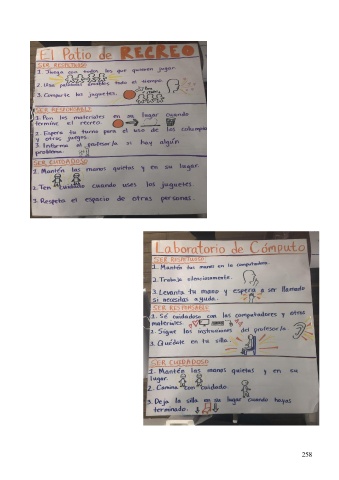 El Patio de RECREO
SER RESPETUOSO
1. Juega con todos los que quieran jugar.
2. Usa palabras amables todo el tiempo.
3. Comparte los juguetes.
SER RESPONSABLE
1. Pon los materiales en su lugar cuando
termine el recreo.
2. Espera tu turno para el uso de los columpios
y otros juegos.
3. Informa al profesor/a si hay algún
problema.
SER CUIDADOSO
1. Mantén las manos quietas y en su lugar.
2. Ten cuidado cuando uses los juguetes.
3. Respeta el espacio de otras personas.
Laboratorio de Cómputo
SER RESPETUOSO:
1. Mantén tus manos en la computadora.
2. Trabaja silenciosamente.
3. Levanta tu mano y espera a ser llamado
si necesitas ayuda.
SER RESPONSABLE
1. Sé cuidadoso con las computadores y otros
materiales.
2. Sigue las instrucciones del profesor/a.
3. Quédate en tu silla.
SER CUIDADOSO
1. Mantén las manos quietas y en su
lugar.
2. Camina con cuidado.
3. Deja la silla en su lugar cuando hayas
terminado.
258